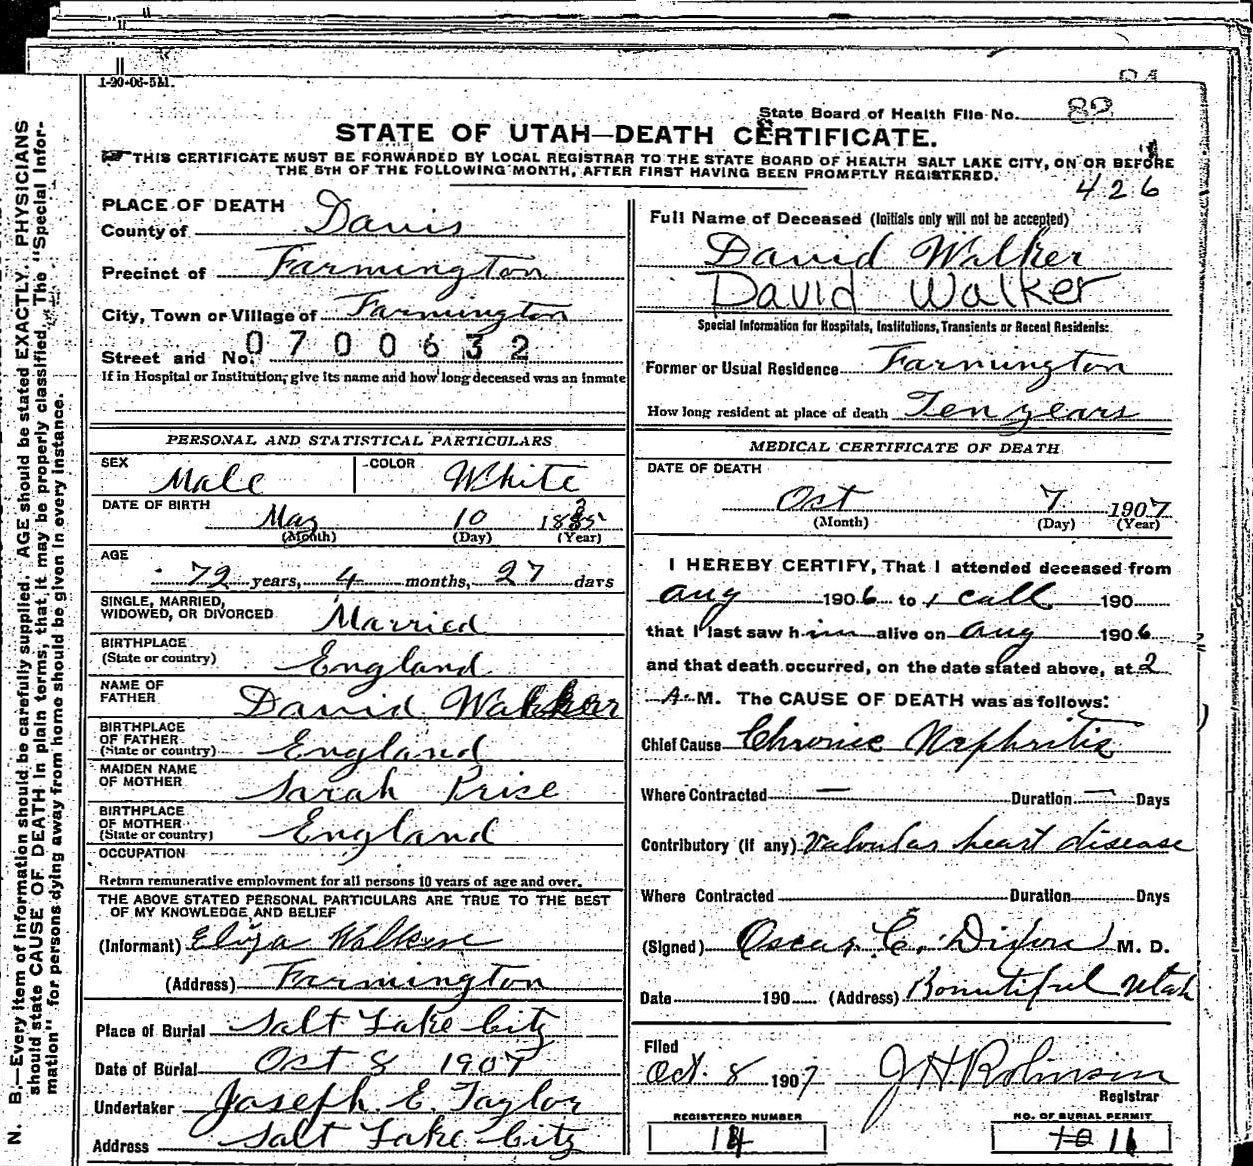 1-20-06-5M.
State Board of Health File No. 82
STATE OF UTAH—DEATH CERTIFICATE.
THIS CERTIFICATE MUST BE FORWARDED BY LOCAL REGISTRAR TO THE STATE BOARD OF HEALTH SALT LAKE CITY, ON OR BEFORE
THE 5TH OF THE FOLLOWING MONTH, AFTER FIRST HAVING BEEN PROMPTLY REGISTERED.
426
PLACE OF DEATH
County of Davis
Precinct of Farmington
City, Town or Village of Farmington
Street and No. 0700632
If in Hospital or Institution, give its name and how long deceased was an inmate
PERSONAL AND STATISTICAL PARTICULARS
SEX Male COLOR White
DATE OF BIRTH May 10 1835
(Month) (Day) (Year)
AGE 72 years, 4 months, 27 days
SINGLE, MARRIED,
WIDOWED, OR DIVORCED Married
BIRTHPLACE
(State or country) England
NAME OF
FATHER David Walker
BIRTHPLACE
OF FATHER
(State or country) England
MAIDEN NAME
OF MOTHER Sarah Price
BIRTHPLACE
OF MOTHER
(State or country) England
OCCUPATION
Return remunerative employment for all persons 10 years of age and over.
THE ABOVE STATED PERSONAL PARTICULARS ARE TRUE TO THE BEST
OF MY KNOWLEDGE AND BELIEF
(Informant) Eliza Walker
(Address) Farmington
Place of Burial Salt Lake City
Date of Burial Oct 8 1907
Undertaker Joseph E. Taylor
Address Salt Lake City
Full Name of Deceased (Initials only will not be accepted)
David Walker
David Walker
Special Information for Hospitals, Institutions, Transients or Recent Residents:
Former or Usual Residence Farmington
How long resident at place of death Ten years
MEDICAL CERTIFICATE OF DEATH
DATE OF DEATH
Oct 7 1907
(Month) (Day) (Year)
I HEREBY CERTIFY, That I attended deceased from
Aug 1906 to 1 call 190
that I last saw him alive on Aug 1906
and that death occurred, on the date stated above, at 2
A. M. The CAUSE OF DEATH was as follows:
Chief Cause Chronic Nephritis
Where Contracted — Duration — Days
Contributory (if any) Valvular heart disease
Where Contracted Duration Days
(Signed) Oscar E. Dixon M. D.
Date 190 (Address) Bountiful Utah
Filed
Oct. 8 1907 J H Robinson
Registrar
REGISTERED NUMBER NO. OF BURIAL PERMIT
14 10 11
N. B.—Every item of information should be carefully supplied. AGE should be stated EXACTLY. PHYSICIANS
should state CAUSE OF DEATH in plain terms, that it may be properly classified. The "Special Infor-
mation" for persons dying away from home should be given in every instance.